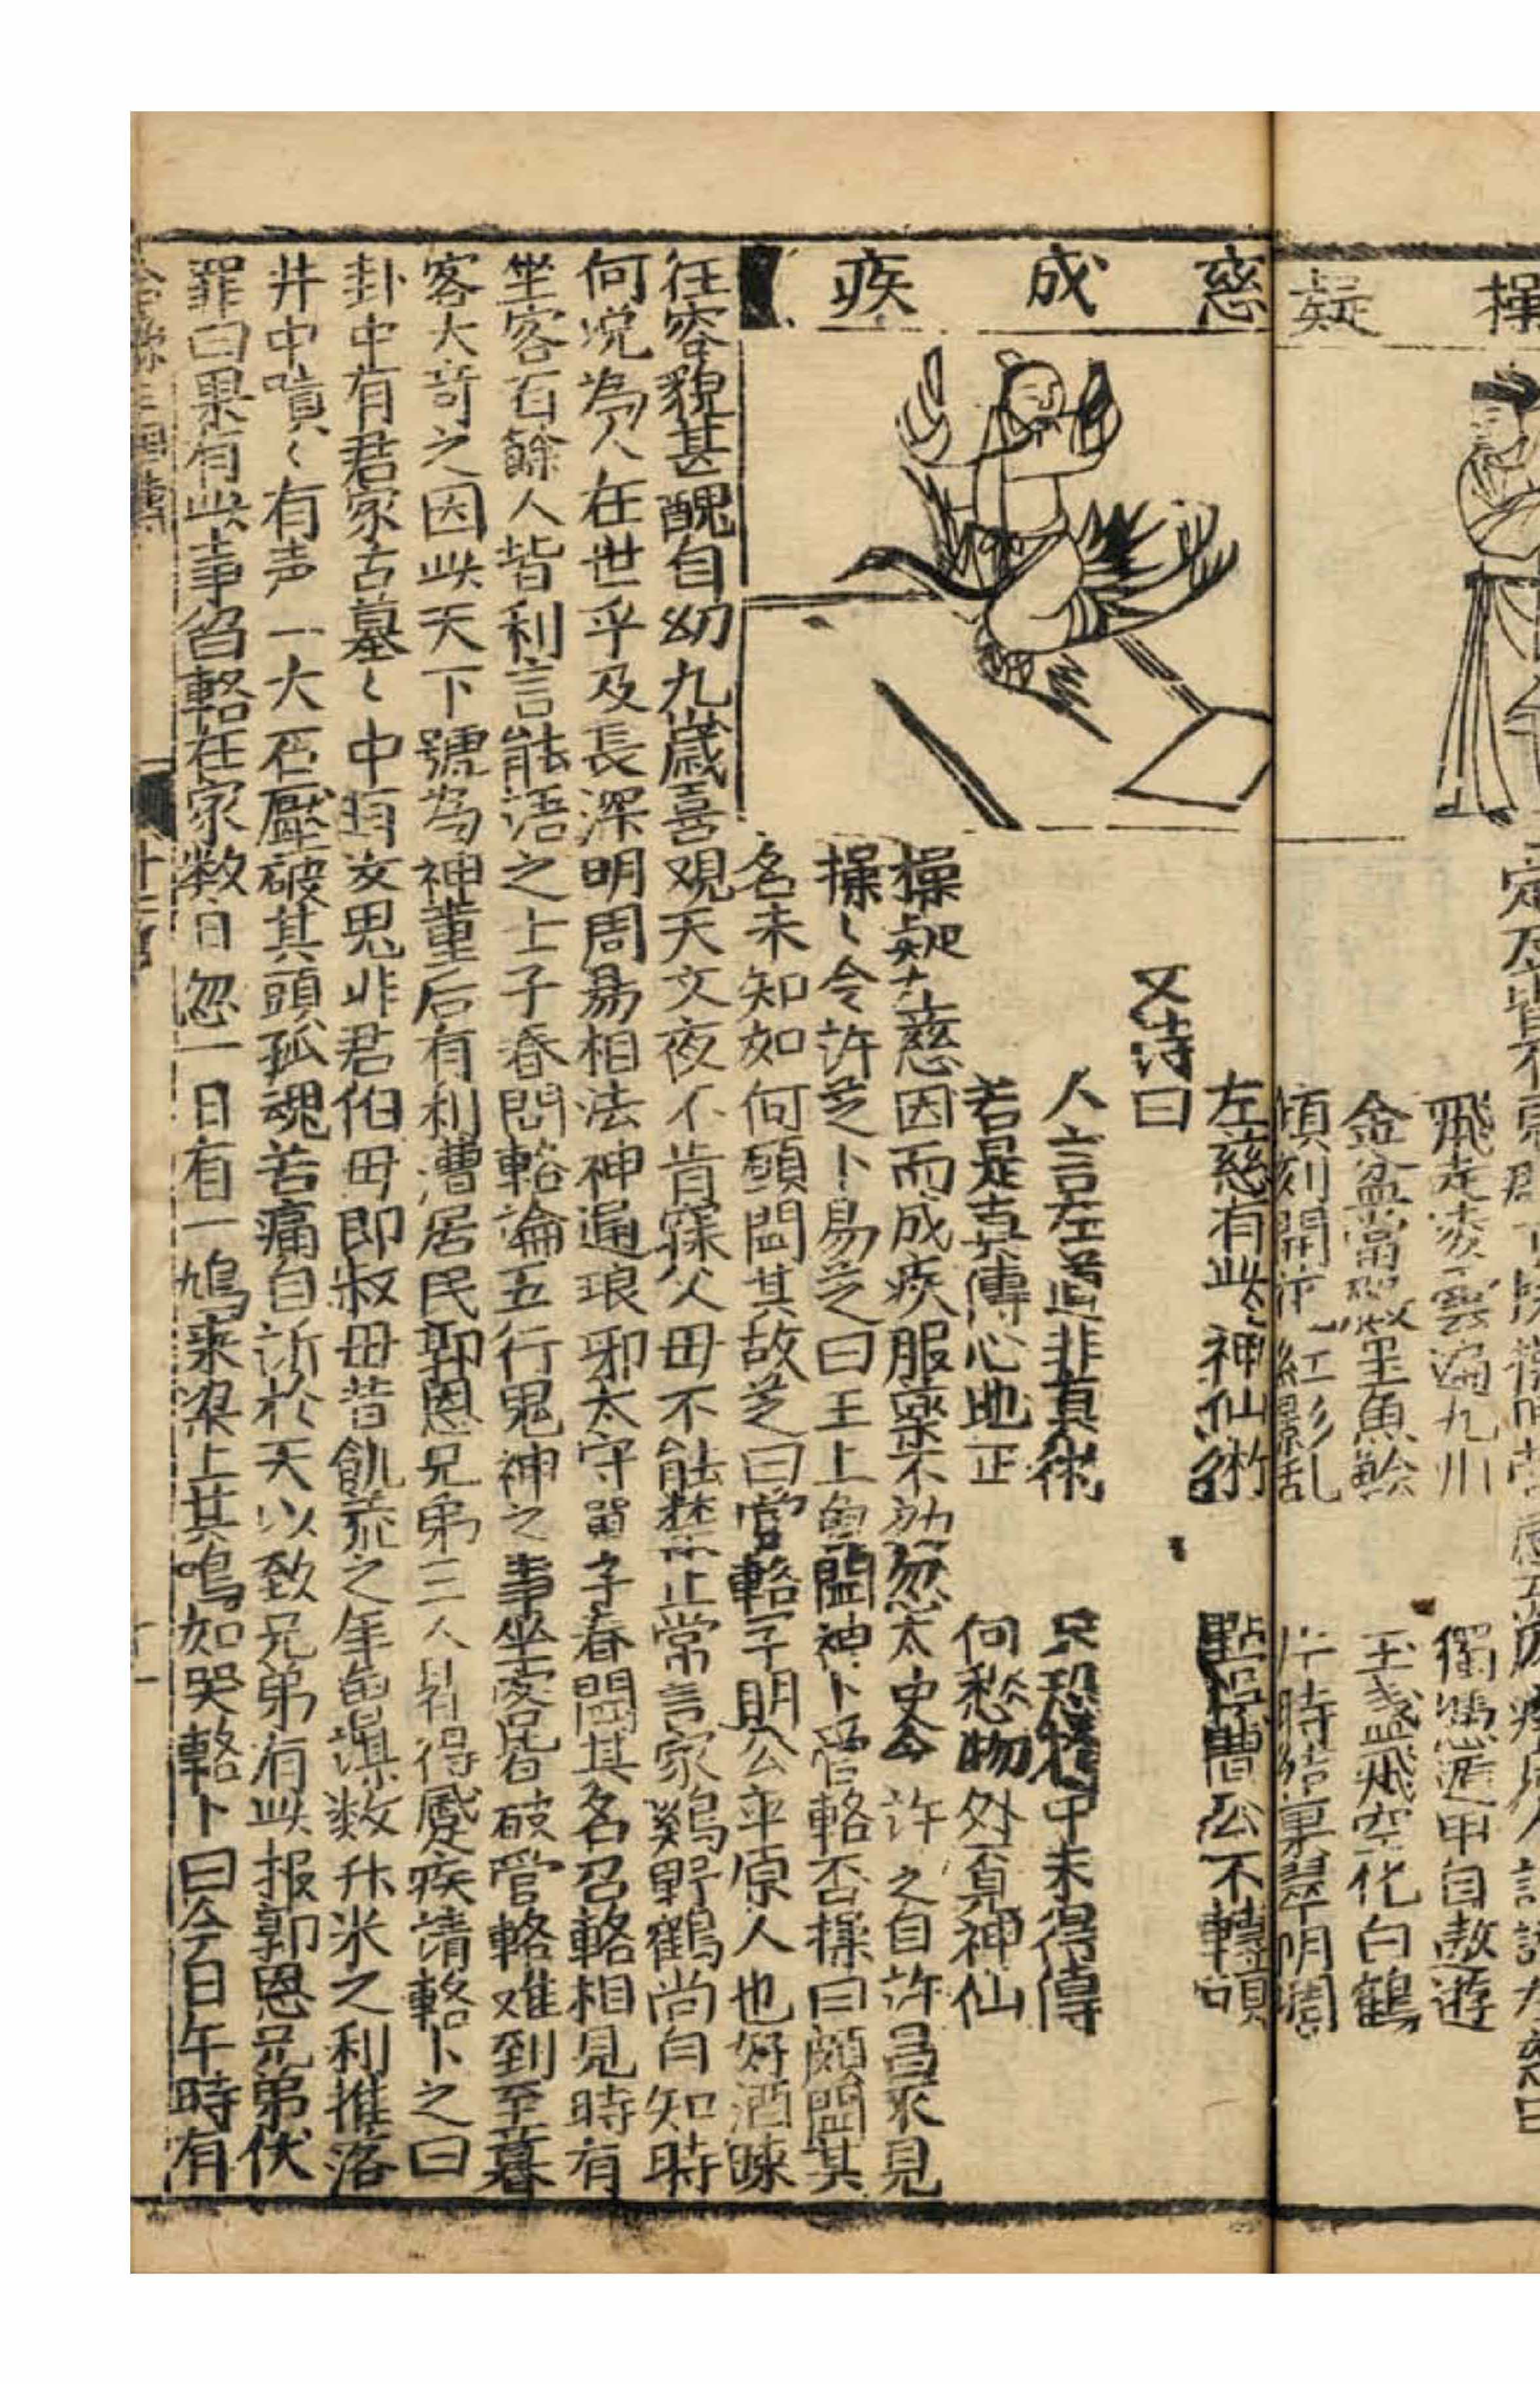 操 疑
定
飛走凌雲遍九州 獨憑遁甲自遨遊
金盆當殿呈魚鱠 玉盞飛空化白鶴
頃刻開花紅影乱 片時結菓翠明凋
慈 成 疾
左慈有此神仙術 點悟曹公不轉頭
又诗曰
人言左道非真術 只恐其中未得傳
若是真傳心地正 何愁物外覓神仙
操疑左慈因而成疾服藥不効忽太史令許之自許昌來見
操〻令許芝卜易芝曰王上曾聞神卜管輅否操曰頗聞其
名未知如何願聞其故芝曰管輅字子明公平原人也好酒踈
往容貌甚醜自幼九歲喜观天文夜不肯寐父毋不能禁止常言家鷄野鶴尚自知時
何况為人在世乎及長深明周昜相法神通琅邪太守單子春聞其名召輅相見時有
坐客百餘人皆利言能语之士子春問輅論五行鬼神之事坐客皆破管輅难到至暮
客大竒之因此天下號為神童后有利漕居民郭恩兄弟三人皆得躄疾请輅卜之曰
卦中有君家古墓〻中有女鬼非君伯毋即叔毋昔飢荒之年謀数升米之利推落
井中嘖〻有声一大石壓破其頭孤魂苦痛自訴於天以致兄弟有此报郭恩兄弟伏
罪曰果有此事管輅在家数日忽一日有一鳩来梁上其鳴如哭輅卜曰今日午時有